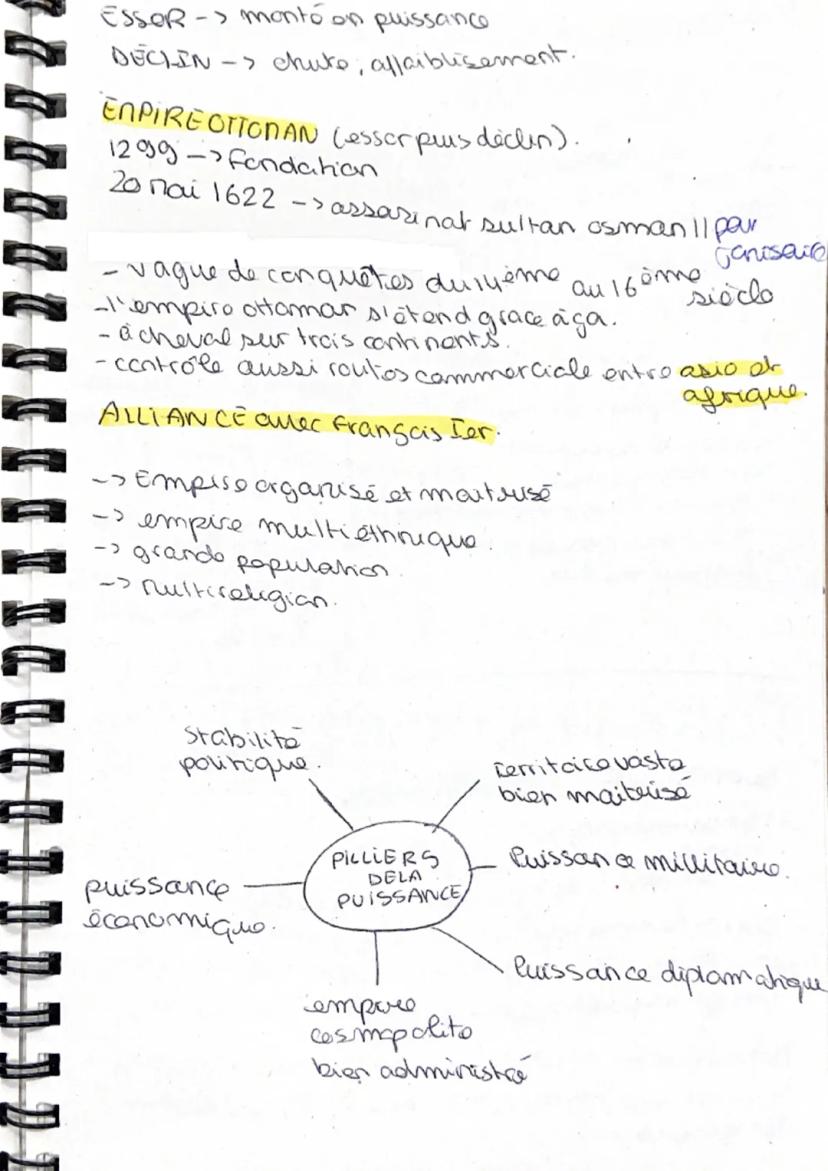 ESSOR -> monté en puissance
DÉCLIN -> chute, affaiblissement.
EMPIRE OTTOMAN (essor puis déclin).
1299 -> fondation
20 mai 1622 -> assasinat sultan osman II par
janissaire
- vague de conquêtes du 14ème au 16ème
siècle
- l'empire ottoman s'étend grace à ça.
- à cheval sur trois continents.
- contrôle aussi routes commerciale entre asie et
afrique.
ALLIANCE avec François Ier.
-> Empire organisé et maitrisé
-> empire multiéthnique.
-> grande population.
-> multireligion.
Stabilité
politique.
territoire vaste
bien maitrisé
PILLIERS
DE LA
PUISSANCE
Puissance millitaire.
puissance
économique.
Puissance diplomatique
empire
cosmpolite
bien administré